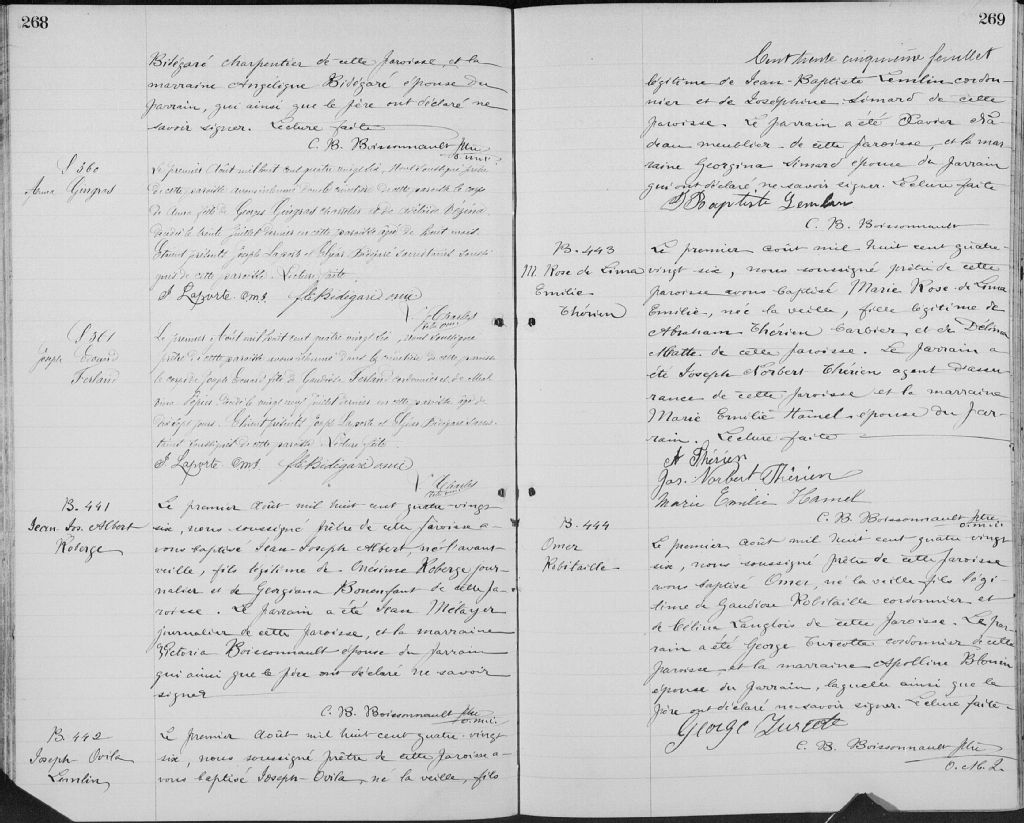 268
Bidégaré charpentier de cette paroisse, et la
marraine Angélique Bidégaré épouse du
parrain, qui ainsi que le père ont déclaré ne
savoir signer. Lecture faite
C. B. Boissonnault ptre
o.m.i.
S 360
Anna Gingras
Le premier Août mil huit cent quatre vingt six, nous soussigné prêtre
de cette paroisse avons inhumé dans le cimetière de cette paroisse le corps
de Anna, fille de Georges Gingras charretier et de
décédée le trente Juillet dernier en cette paroisse âgée de huit mois.
Étaient présents Joseph Laporte et Elzéar Bidégaré soussi-
gnés de cette paroisse. Lecture faite
J. Laporte O.m.I. Bidégaré omi
ptre omi
S 361
Joseph Edouard
Ferland
Le premier Août mil huit cent quatre vingt six, nous soussigné
prêtre de cette paroisse avons inhumé dans le cimetière de cette paroisse
le corps de Joseph Edouard, fils de Gaudiose Ferland cordonnier et de
décédé le vingt neuf Juillet dernier en cette paroisse âgé de
jours. Étaient présents Joseph Laporte et Elzéar Bidégaré
soussignés de cette paroisse. Lecture faite
J. Laporte O.m.I. Bidégaré omi
ptre omi
B. 441
Jean Jos. Albert
Roberge
Le premier Août mil huit cent quatre-vingt
six, nous soussigné prêtre de cette paroisse a-
vons baptisé Jean-Joseph Albert, né l'avant
veille, fils légitime de Onésime Roberge jour-
nalier et de Georgiana Bonenfant de cette pa-
roisse. Le parrain a été Jean Métayer
journalier de cette paroisse, et la marraine
Victoria Boissonnault épouse du parrain
qui ainsi que le père ont déclaré ne savoir
signer
C. B. Boissonnault ptre
o.m.i.
B. 442
Joseph Ovila
Lemlin
Le premier Août mil huit cent quatre-vingt
six, nous soussigné prêtre de cette paroisse a-
vons baptisé Joseph Ovila, né la veille, fils
269
Cent trente cinquième feuillet
légitime de Jean-Baptiste Lemlin cordon-
nier et de Joséphine Simard de cette
paroisse. Le parrain a été Xavier Na-
deau meublier de cette paroisse, et la mar-
raine Georgina Simard épouse du parrain
qui ont déclaré ne savoir signer. Lecture faite
J Baptiste Lemlin
C. B. Boissonnault
B. 443
M. Rose de Lima
Emilie
Thérien
Le premier août mil huit cent quatre
vingt six, nous soussigné prêtre de cette
paroisse avons baptisé Marie Rose de Lima
Emilie, née la veille, fille légitime de
Abraham Thérien barbier et de Délima
Matte de cette paroisse. Le parrain a
été Joseph Norbert Thérien agent d'assu-
rance de cette paroisse et la marraine
Marie Emilie Hamel épouse du par-
rain. Lecture faite
A Thérien
Jos. Norbert Thérien
Marie Emilie Hamel
C. B. Boissonnault ptre
o.m.i.
B. 444
Omer
Robitaille
Le premier août mil huit cent quatre vingt
six, nous soussigné prêtre de cette paroisse
avons baptisé Omer, né la veille fils légi-
time de Gaudiose Robitaille cordonnier et
de Célina Langlois de cette paroisse. Le par-
rain a été George Turcotte cordonnier de cette
paroisse et la marraine Apolline Blouin
épouse du parrain, laquelle ainsi que le
père ont déclaré ne savoir signer. Lecture faite
George Turcotte
C. B. Boissonnault ptre
O.M.I.